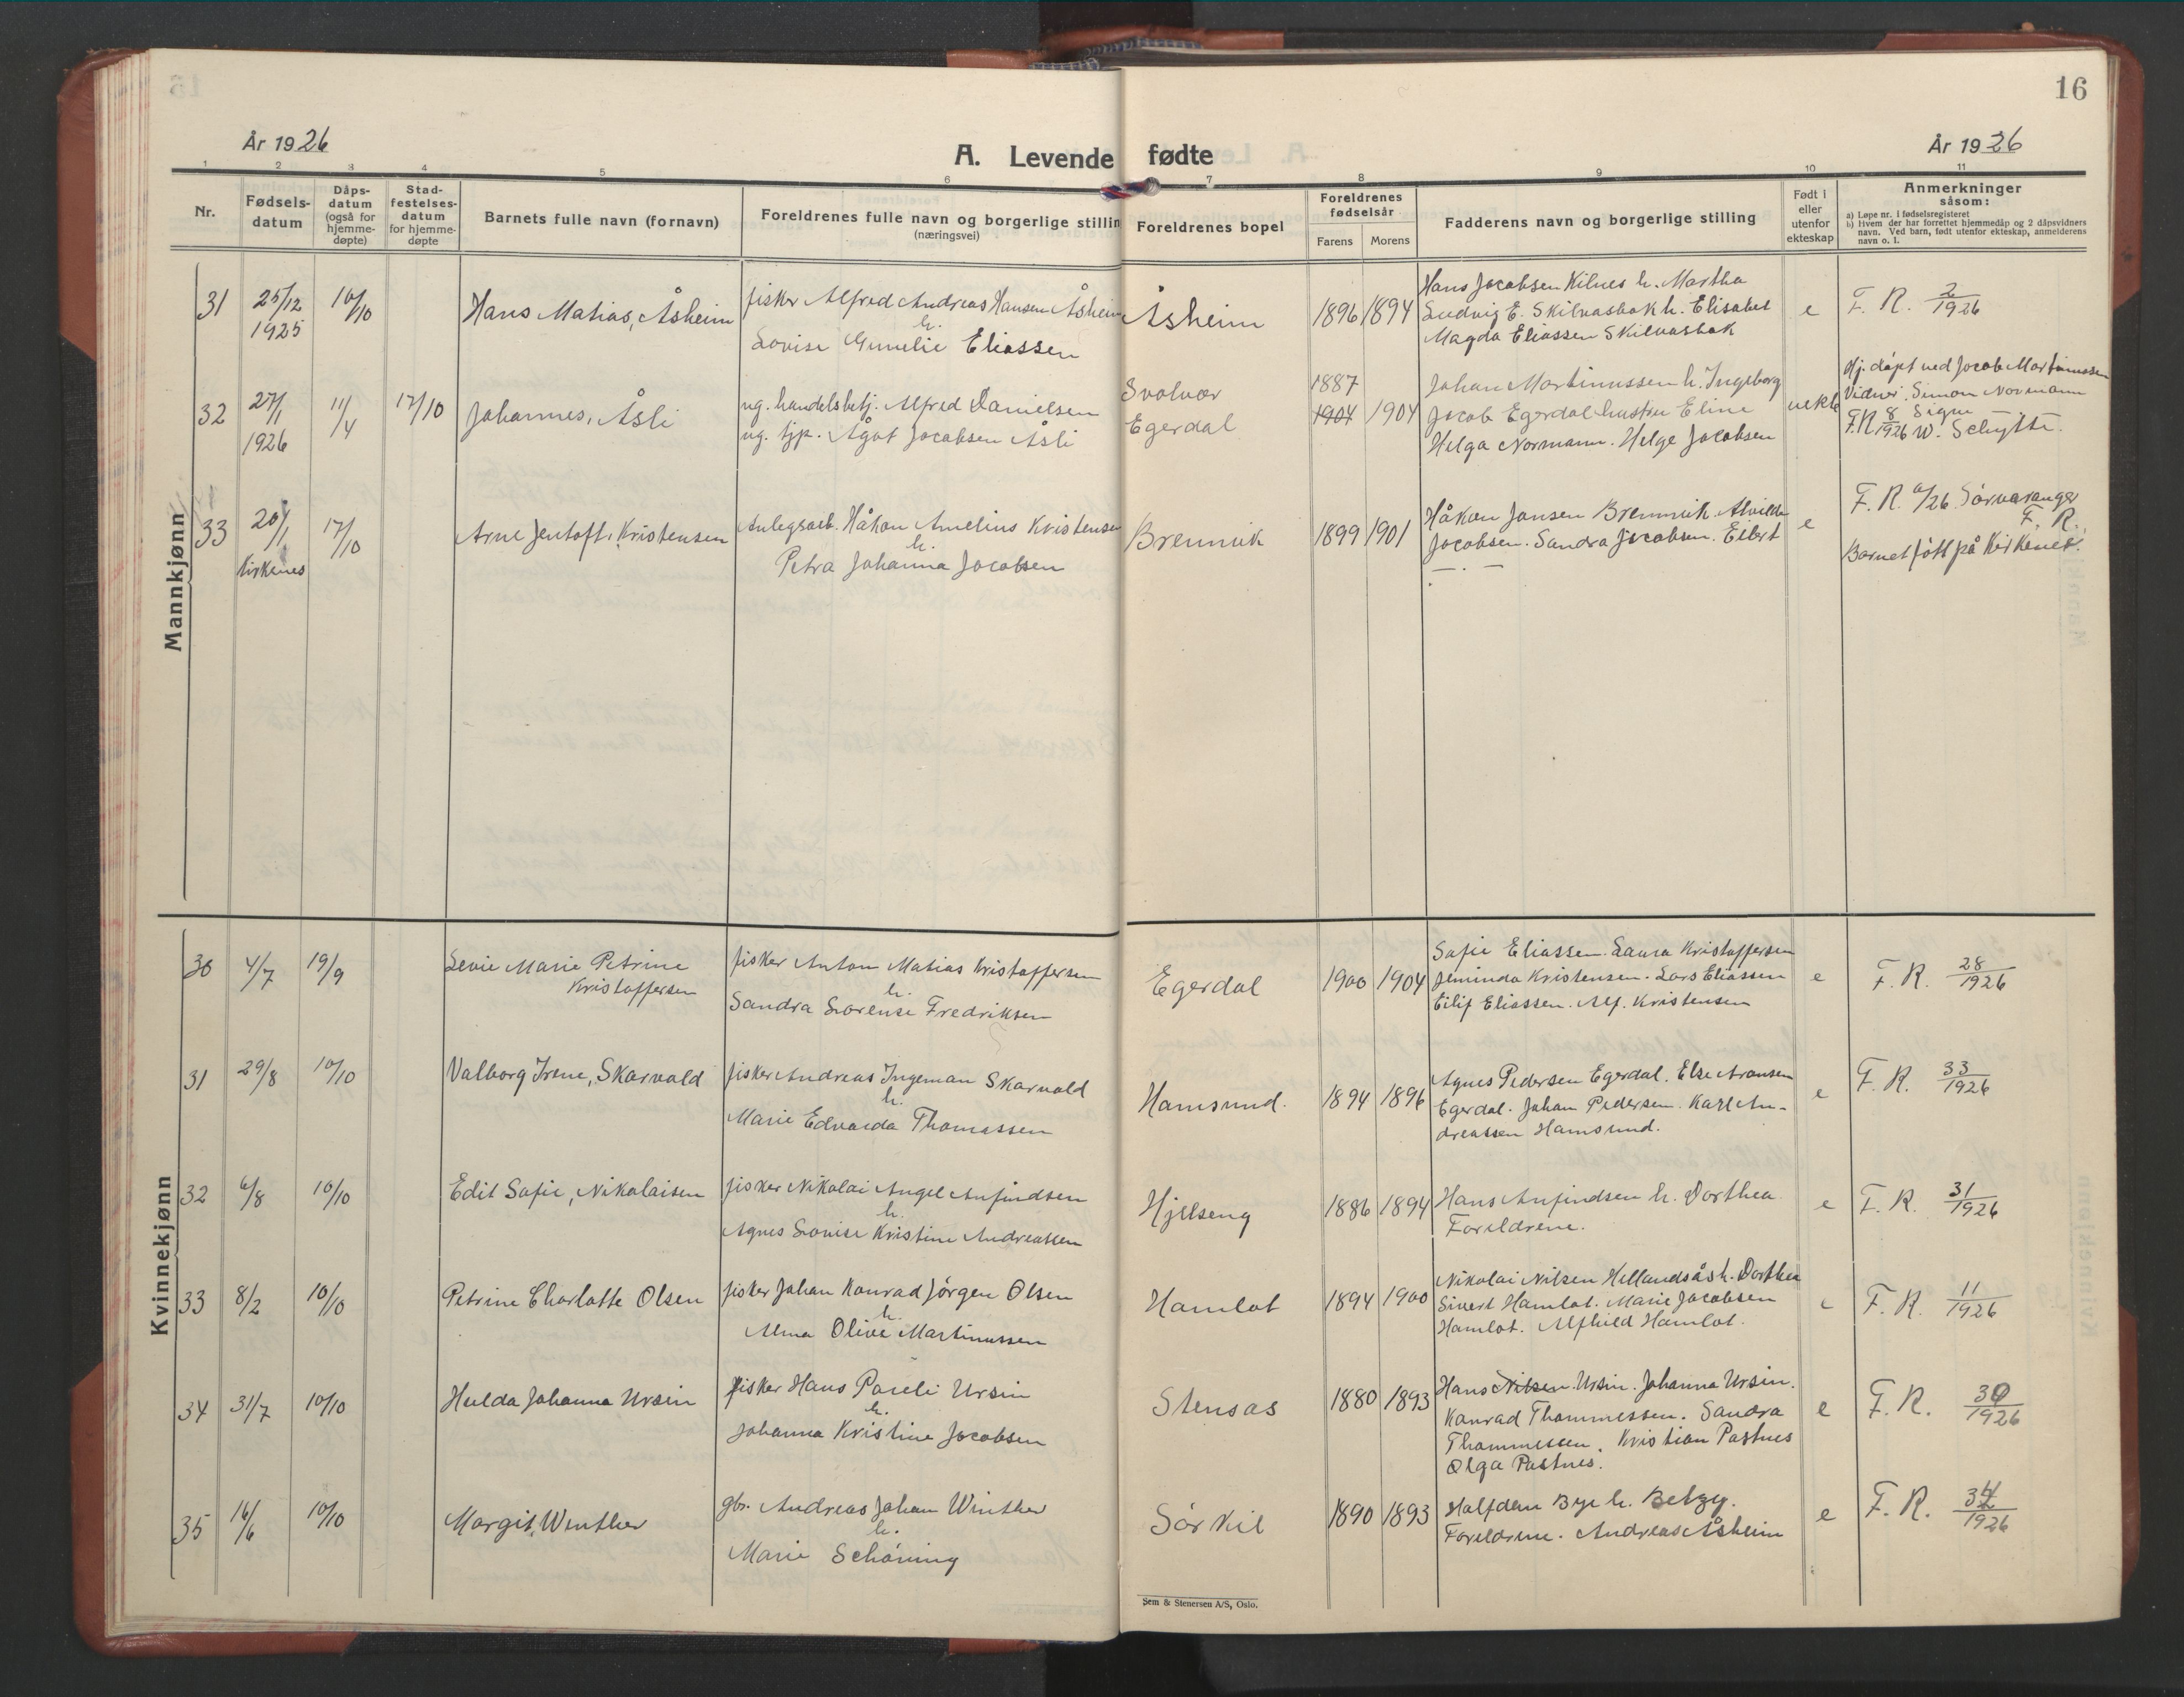 16
År 1926
År 1926
A. Levende fødte
1 2 3 4 5 6 7 8 9 10 11
Nr.
Fødsels-
datum
Dåps-
datum
(også for
hjemme-
døpte)
Stad-
festelses-
datum
for hjemme-
døpte
Barnets fulle navn (fornavn)
Foreldrenes fulle navn og borgerlige stillin
(næringsvei)
Foreldrenes bopel
Foreldrenes
fødselsår
Farens Morens
Fadderens navn og borgerlige stilling
Født i
eller
utenfor
ekteskap
Anmerkninger
såsom:
a) Løpe nr. i fødselsregisteret
b) Hvem der har forrettet hjemmedåp og 2 dåpsvidners
navn. Ved barn, født utenfor ekteskap, anmelderens
navn o. l.
Mannkjønn
31
25/12
1925
10/10
Hans Matias, Åsheim
fisker Alfred Andreas Hansen Åsheim
h.
Lovise Eliassen
Åsheim
1896 1894
Hans Jacobsen Kilnes h. Martha
Ludvig E. Skilvasbak h. Elisabet
Magda Eliassen Skilvasbak
e
F. R. 2/1926
32
27/1
1926
11/4
17/10
Johannes, Åsli
ug. handelsbetj. Alfred Danielsen
ug. tjp. Ågot Jocobsen Åsli
Svolvær
Egerdal
1887
1904 1904
Johan Martinussen h. Ingeborg
Jocob Egerdal hustru Eline
Helga Normann. Helge Jacobsen
uekte
Hj. døpt ved Jocob Martinussen
Vidner. Simon Normann
F.R 8/1926 Signe W. Schytte.
33
20/1
Kirkenes
17/10
Arne Jentoft, Kristensen
Anlegsarb. Håkon Amelius Kristensen
h.
Petra Johanna Jocobsen
Brennvik
1899 1901
Håkon Jansen Brennvik. Alvilde
Jocobsen. Sandra Jocobsen. Eilert
e
F. R. 6/26 Sørvaranger
F. R.
Barnet født på Kirkenes.
Kvinnekjønn
30
4/7
19/9
Levie Marie Petrine
Kristoffersen
fisker Anton Matias Kristoffersen
h.
Sandra Lorense Fredriksen
Egerdal
1900 1904
Sofie Eliassen. Laura Kristoffersen
Jeminda Kristensen. Lars Eliassen
Eilif Eliassen. Alf. Kristensen
e
F. R. 28/1926
31
29/8
10/10
Valborg Irene, Skarvold
fisker Andreas Ingeman Skarvold
h.
Marie Edvarda Thomassen
Hamsund.
1894 1896
Agnes Pedersen Egerdal. Else Aronsen
Egerdal. Johan Pedersen. Karl An-
dreassen Hamsund.
e
F. R. 33/1926
32
6/8
10/10
Edit Sofie, Nikolaisen
fisker Nikolai Angel Anfindsen
h.
Agnes Lovise Kristine Andreassen
Hjelseng
1886 1894
Hans Anfindsen h. Dorthea
Foreldrene.
e
F. R. 31/1926
33
8/2
10/10
Petrine Charlotte Olsen
fisker Johan Konrad Jørgen Olsen
h.
Alma Olive Martinussen
Hamlot
1894 1900
Nikolai Nilsen Hellandsås h. Dorthea
Sivert Hamlot. Marie Jacobsen
Hamlot. Alfhild Hamlot.
e
F. R. 11/1926
34
31/7
10/10
Hulda Johanna Ursin
fisker Hans Pareli Ursin
h.
Johanna Kristine Jocobsen
Stensås
1880 1893
Hans Nilsen. Ursin. Johanna Ursin.
Konrad Thommessen. Sandra
Thommessen. Kristian Pastnes
Olga Pastnes.
e
F. R. 30/1926
35
16/6
10/10
Margit, Winther
gbr. Andreas Johan Winther
h.
Marie Schøning
Sørkil
1890 1893
Halfdan Bye h. Betzy.
Foreldrene. Andreas Åsheim
e
F. R. /1926
Sem & Stenersen A/S, Oslo.